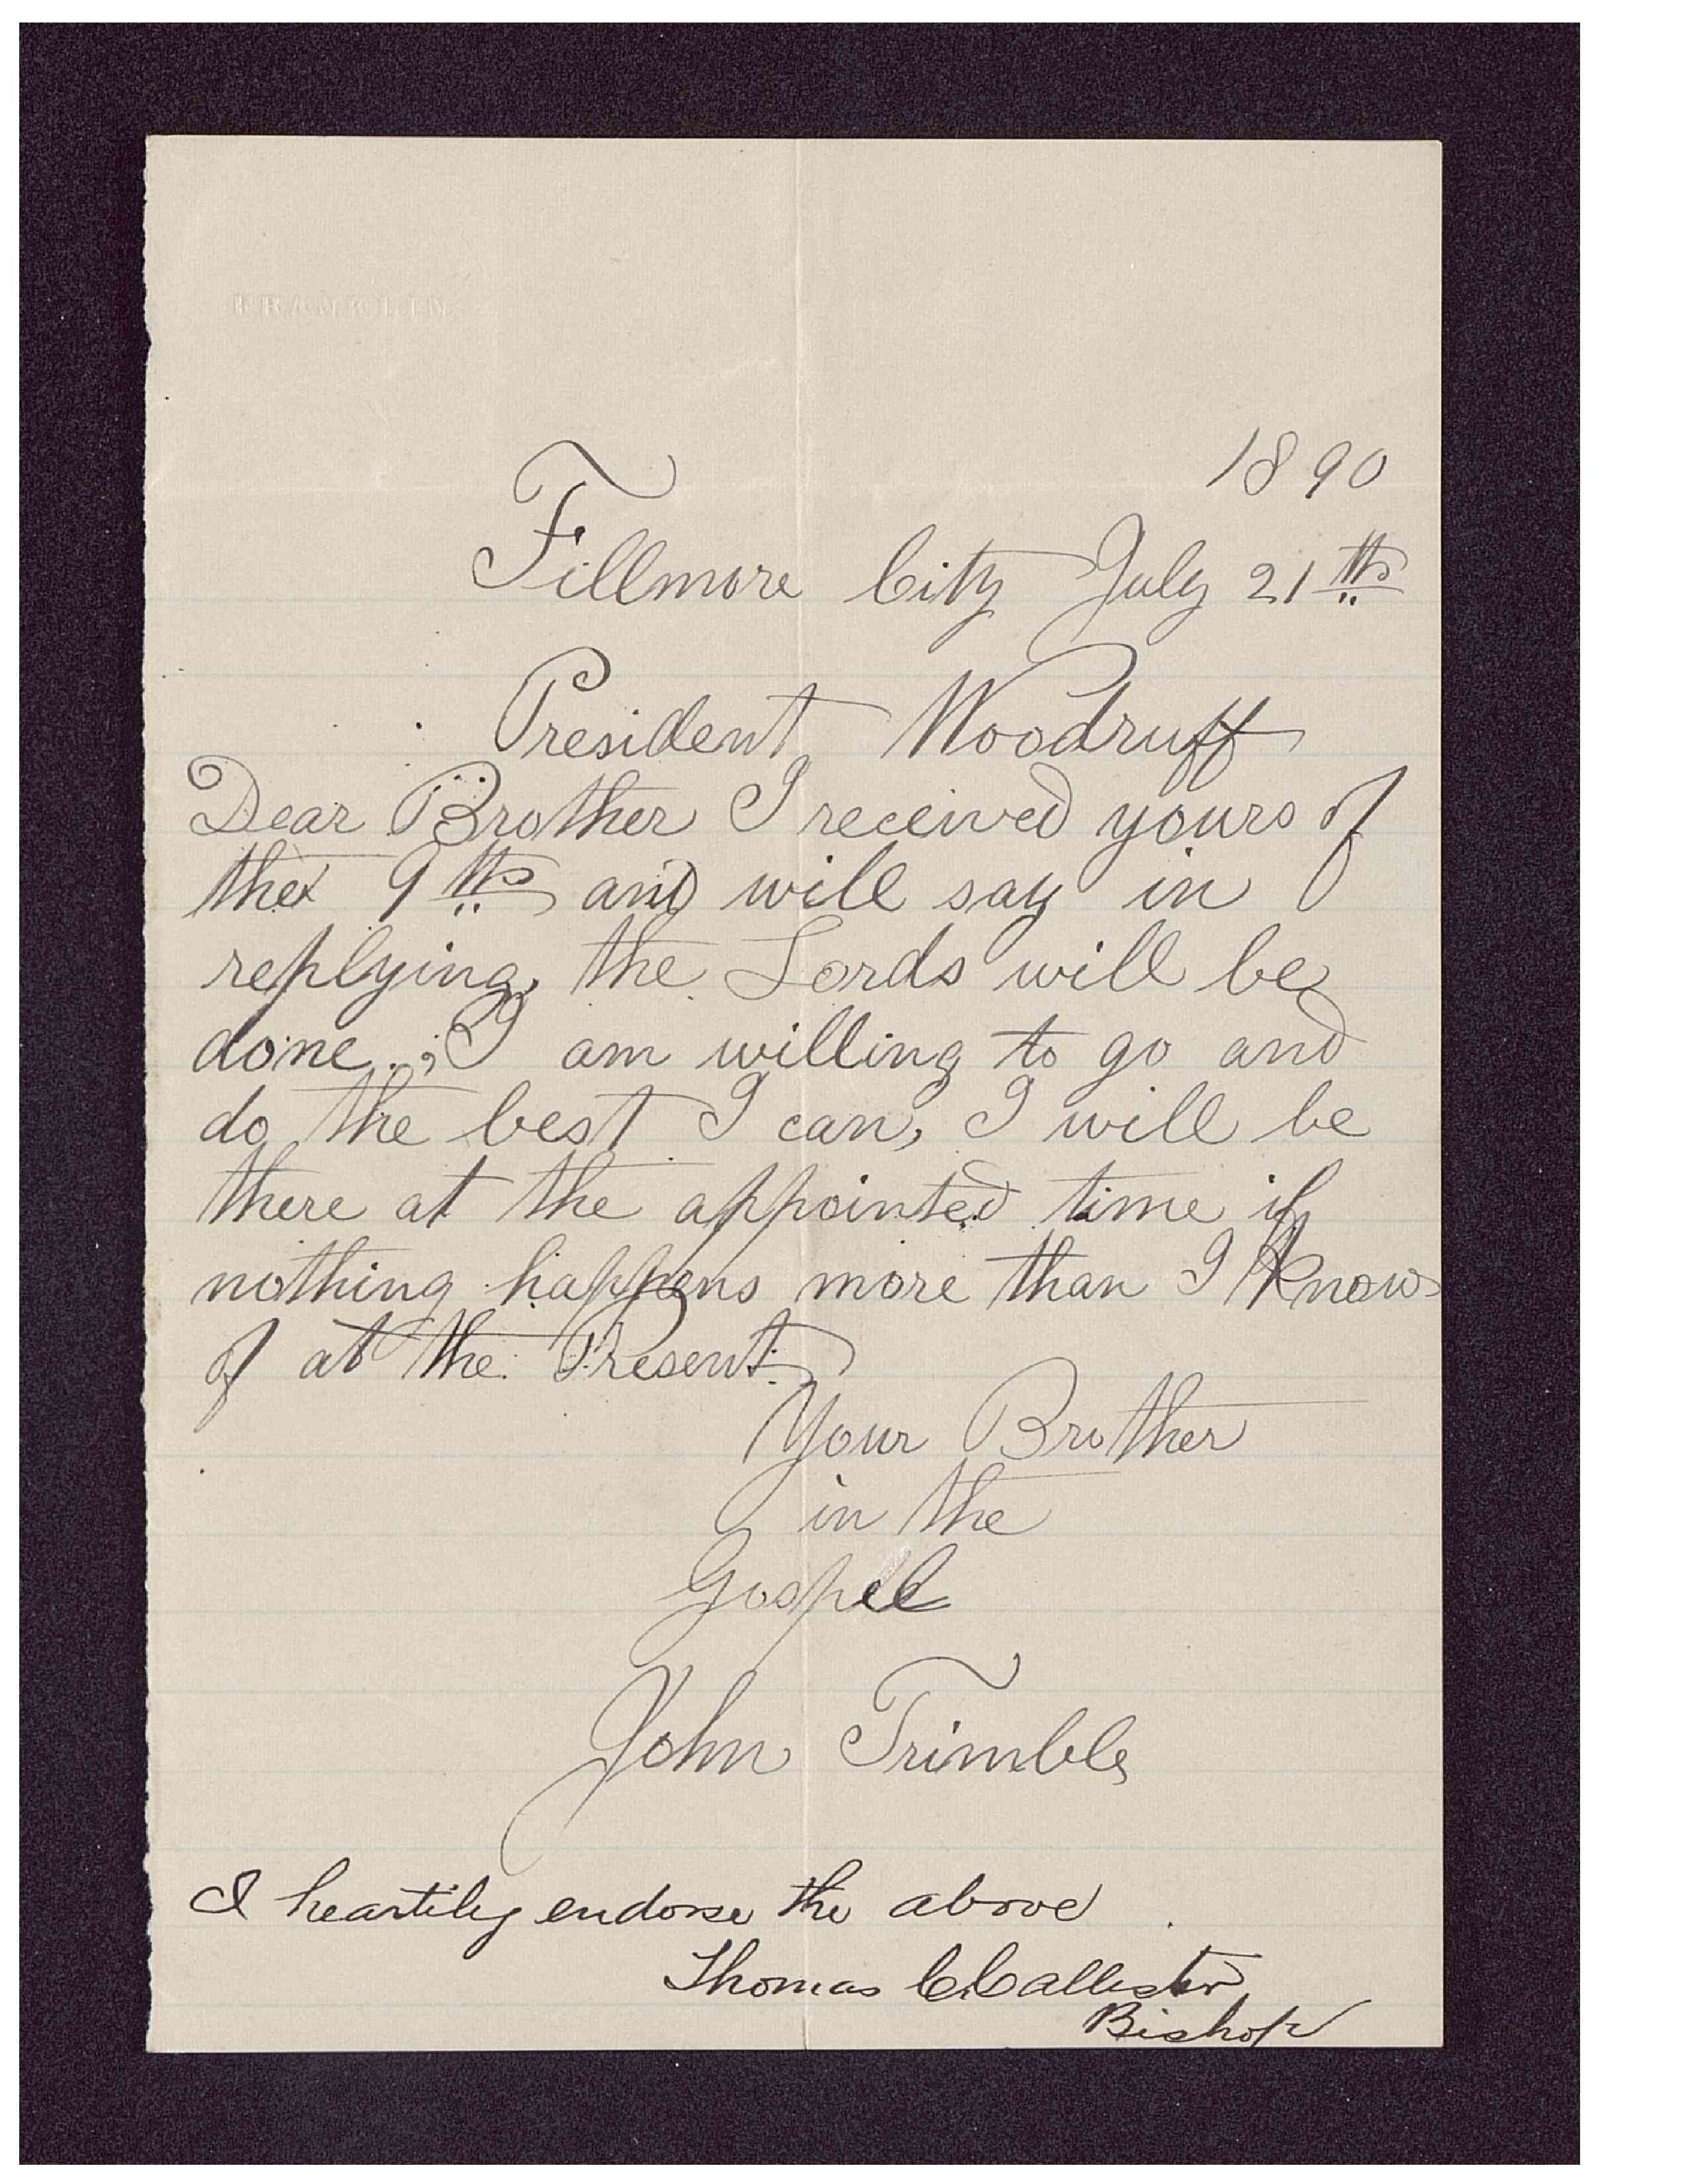 FRANKLIN
1890
Fillmore City July 21th
President Woodruff
Dear Brother I received yours of
the 9th and will say in
replying, the Lords will be
done.; I am willing to go and
do the best I can, I will be
there at the appointed time if
nothing happens more than I know
of at the Present.
Your Brother
in the
Gospel
John Trimble
I heartily endorse the above.
Thomas C Callister
Bishop